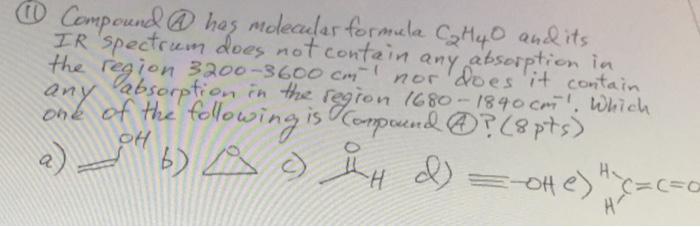 ⑪ Compound Ⓐ has molecular formula C₂H₄O and its
IR spectrum does not contain any absorption in
the region 3200-3600 cm⁻¹ nor does it contain
any absorption in the region 1680-1840 cm⁻¹. Which
one of the following is Compound Ⓐ? (8 pts)
a) OH b) O c) O H d) ≡-OH e) H H C=C=O